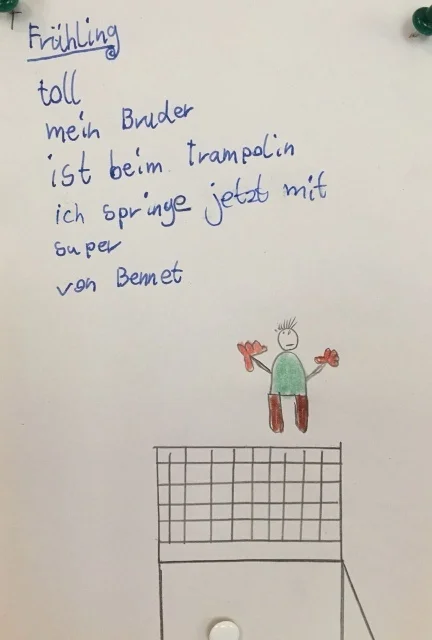 Frühling
toll
mein Bruder
ist beim trampolin
ich springe jetzt mit
super
von Bennet